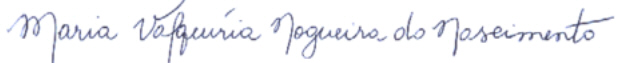 Maria Valquíria Nogueira do Nascimento